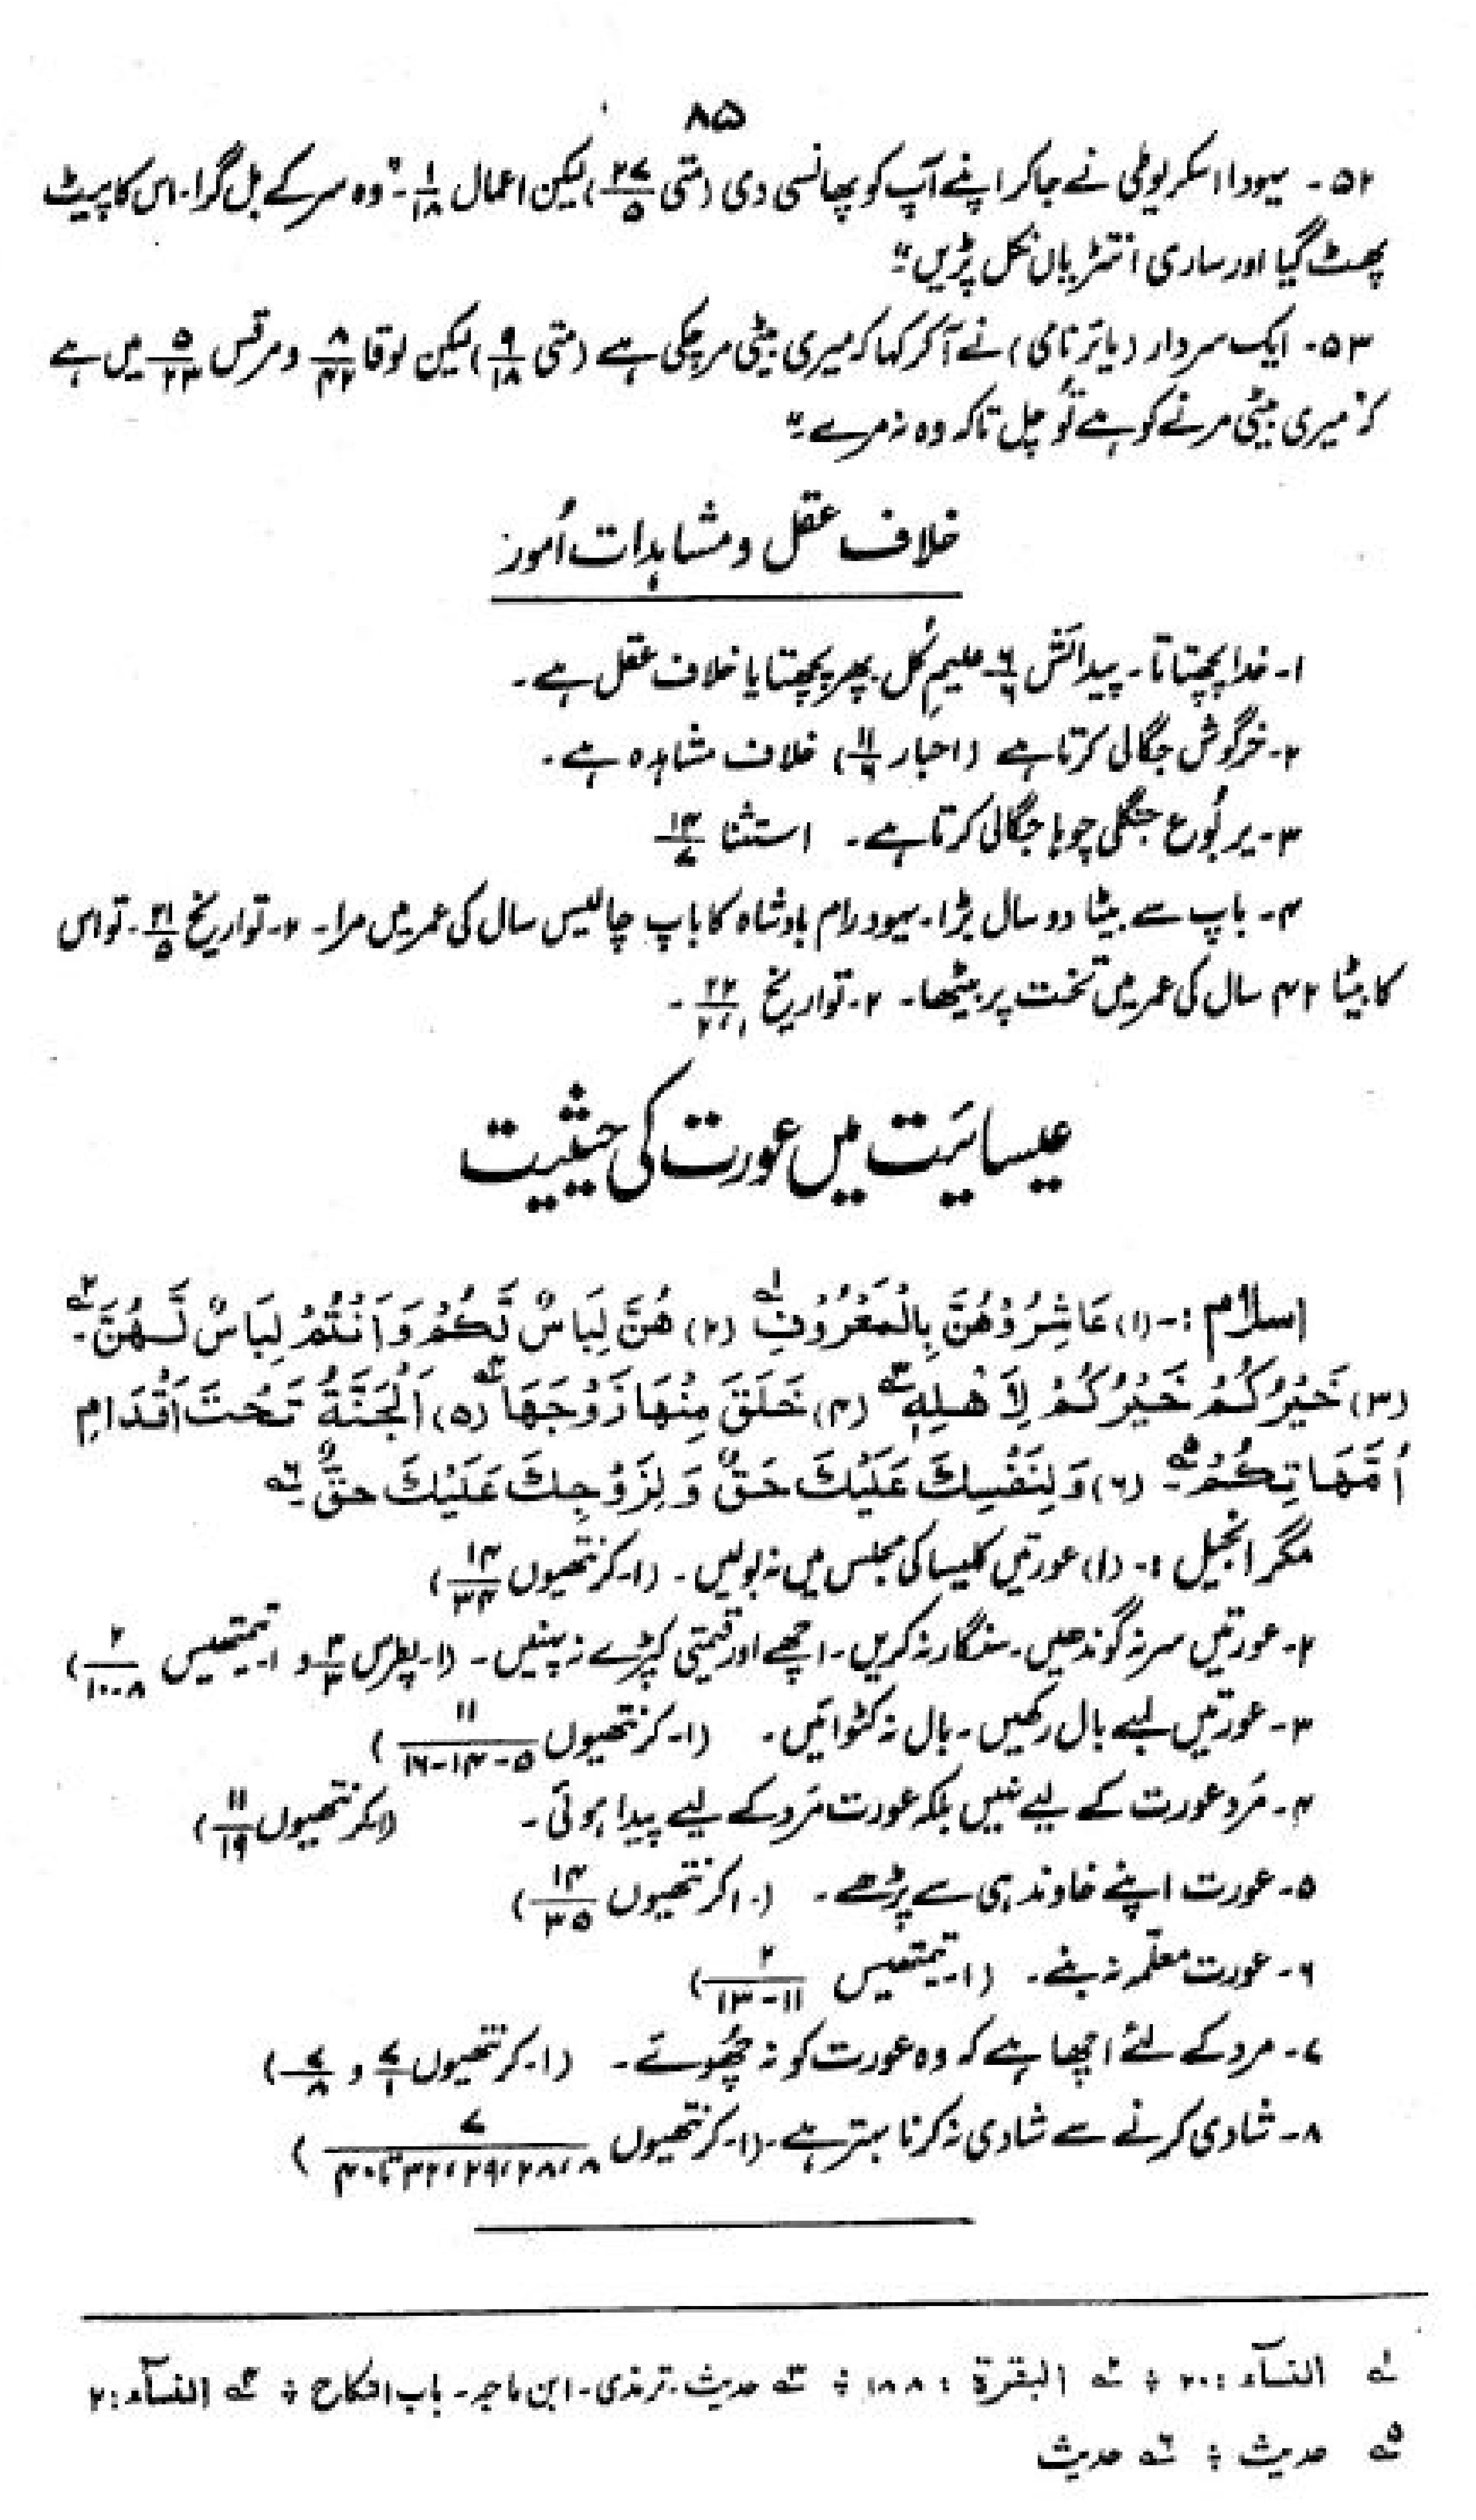 ۸۵
۵۲۔ یہودا اسکریوطی نے جاکر اپنے آپ کو پھانسی دی (متی ۲۷/۵) لیکن اعمال ۱/۱۸۔ "وہ سر کے بل گرا۔ اس کا پیٹ
پھٹ گیا اور ساری انتڑیاں نکل پڑیں۔"
۵۳۔ ایک سردار (یائر نامی) نے آکر کہا کہ میری بیٹی مر چکی ہے (متی ۹/۱۸) لیکن لوقا ۸/۴۲ و مرقس ۵/۲۳ میں ہے
کہ "میری بیٹی مرنے کو ہے تُو چل تاکہ وہ نہ مرے۔"
خلاف عقل و مشاہدات اُمور
۱۔ خدا پچھتاتا۔ پیدائش ۶/۶۔ علیمِ کُل پھر پچھتایا خلاف عقل ہے۔
۲۔ خرگوش جگالی کرتا ہے (احبار ۱۱/۶) خلاف مشاہدہ ہے۔
۳۔ یربُوع جنگلی چوہا جگالی کرتا ہے۔ استثنا ۱۴/۷
۴۔ باپ سے بیٹا دو سال بڑا۔ یہودرام بادشاہ کا باپ چالیس سال کی عمر میں مرا۔ ۲۔ تواریخ ۲۱/۵۔ تو اس
کا بیٹا ۴۲ سال کی عمر میں تخت پر بیٹھا۔ ۲۔ تواریخ ۲۲/۱،۲۔
عیسائیت میں عورت کی حیثیت
اسلام :۔ (۱) عَاشِرُوْهُنَّ بِالْمَعْرُوْفِ ۱؎ (۲) هُنَّ لِبَاسٌ لَّكُمْ وَاَنْتُمْ لِبَاسٌ لَّهُنَّ۔ ۲؎
(۳) خَيْرُكُمْ خَيْرُكُمْ لِاَهْلِهٖ ۳؎ (۴) خَلَقَ مِنْهَا زَوْجَهَا ۴؎ (۵) اَلْجَنَّةُ تَحْتَ اَقْدَامِ
اُمَّهَاتِكُمْ۔ ۵؎ (۶) وَلِنَفْسِكَ عَلَيْكَ حَقٌّ وَلِزَوْجِكَ عَلَيْكَ حَقٌّ۔ ۶؎
مگر انجیل :۔ (۱) عورتیں کلیسا کی مجلس میں نہ بولیں۔ (۱۔کرنتھیوں ۱۴/۳۴)
۲۔ عورتیں سر نہ گوندھیں۔ سنگار نہ کریں۔ اچھے اور قیمتی کپڑے نہ پہنیں۔ (۱۔پطرس ۳/۳ و ۱۔تیمتھیس ۲/۸۔۱۰)
۳۔ عورتیں لمبے بال رکھیں۔ بال نہ کٹوائیں۔ (۱۔کرنتھیوں ۱۱/۵۔۱۴۔۱۶)
۴۔ مَرد عورت کے لیے نہیں بلکہ عورت مَرد کے لیے پیدا ہوئی۔ (۱۔کرنتھیوں ۱۱/۱۹)
۵۔ عورت اپنے خاوند ہی سے پڑھے۔ (۱۔کرنتھیوں ۱۴/۳۵)
۶۔ عورت معلّمہ نہ بنے۔ (۱۔تیمتھیس ۲/۱۱۔۱۳)
۷۔ مرد کے لئے اچھا ہے کہ وہ عورت کو نہ چُھوئے۔ (۱۔کرنتھیوں ۷/۱ و ۷/۸)
۸۔ شادی کرنے سے شادی نہ کرنا بہتر ہے۔ (۱۔کرنتھیوں ۷/۸،۲۸،۲۹،۳۲تا۴۰)
۱؎ النسآء :۲۰ ؛ ۲؎ البقرة : ۱۸۸ ؛ ۳؎ حدیث۔ ترمذی۔ ابن ماجہ۔ باب النکاح ؛ ۴؎ النسآء :۲
۵؎ حدیث ؛ ۶؎ حدیث